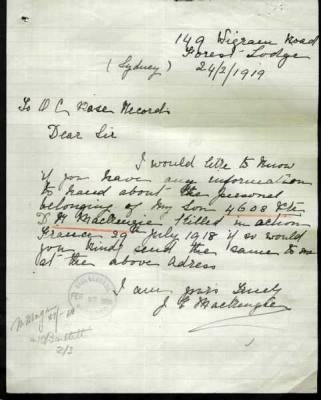 149 Wigram Road
Forest Lodge
(Sydney)
24/2/1919
To O C Base Records
Dear Sir
I would like to know
if you have any information
to hand about the personal
belonging of my Son 4608 Pte
D H MacKenzie Killed in action
France 29th July 1918 if so would
you kindly send the same to me
at the above adress
I am yours truly
J E MacKenzie